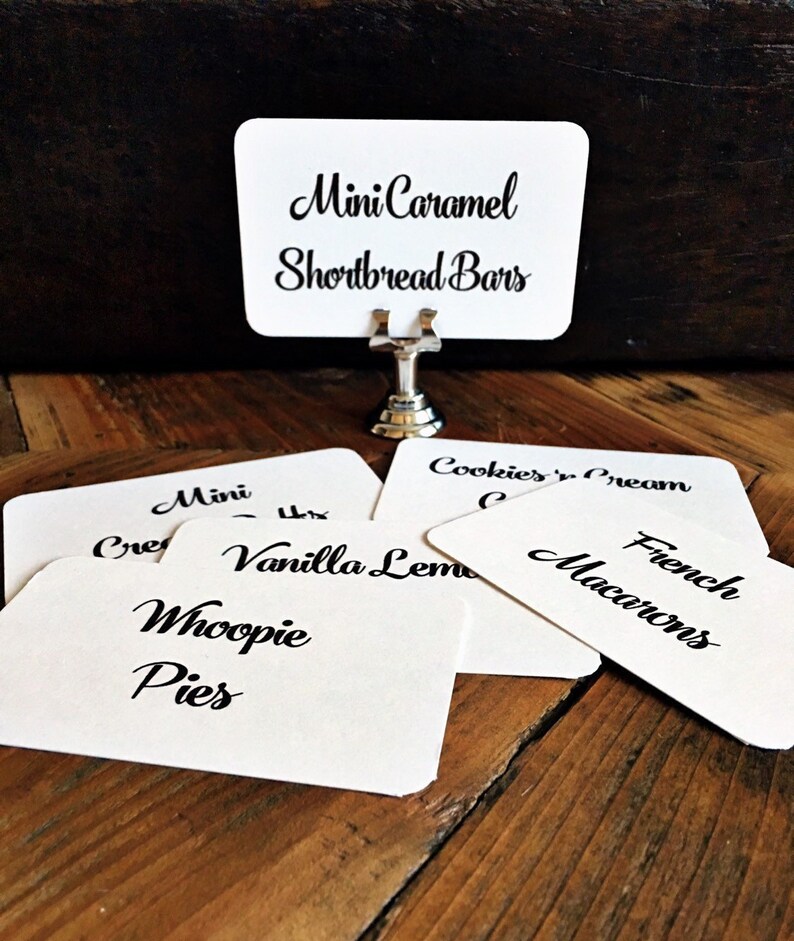 Mini Caramel
Shortbread Bars
Mini
Cookies 'n Cream
Vanilla
French
Macarons
Whoopie
Pies